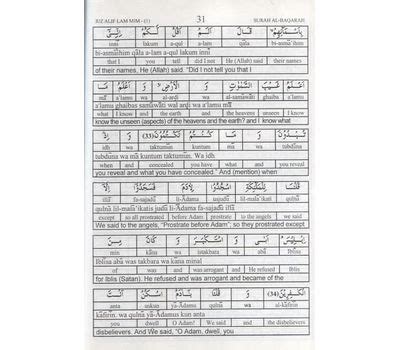 JUZ ALIF LAM MIM - (1) 31 SURAH AL-BAQARAH
بِأَسْمَائِهِمْ قَالَ أَلَمْ أَقُلْ لَكُمْ إِنِّي
innī lakum a-qul a-lam qāla bi-asmā'ihim
bi-asmā'ihim qāla a-lam aqul lakum innī
that I you tell did not He said of their names
of their names, He (Allah) said. "Did I not tell you that I
أَعْلَمُ غَيْبَ السَّمَٰوَٰتِ وَ الْأَرْضِ وَ أَعْلَمُ مَا
mā a'lamu wa al-arḍi wa al-samāwāti ghaiba a'lamu
a'lamu ghaibas samāwāti wal arḍi wa a'lamu mā
what I know and the earth and the heavens unseen I know
know the unseen (aspects) of the heavens and the earth? and I know what
تُبْدُونَ وَ مَا كُنْتُمْ تَكْتُمُونَ (33) وَ إِذْ
idh wa taktumūn kuntum mā wa tubdūna
tubdūna wa mā kuntum taktumūn. Wa idh
when and concealed you have what and you reveal
you reveal and what you have concealed." And (mention) when
قُلْنَا لِلْمَلَٰئِكَةِ اسْجُدُوا لِآدَمَ فَسَجَدُوا إِلَّا
illā fa-sajadū li-Ādama usjudū lil-malā'ikati qulnā
qulnā lil-malā'ikatis judū li-Ādama fa-sajadū illā
except so all prostrated before Adam prostrate to the angels we said
We said to the angels, "Prostrate before Adam"; so they prostrated except
إِبْلِيسَ أَبَىٰ وَ اسْتَكْبَرَ وَ كَانَ مِنَ
min kāna wa istakbara wa abā Iblīsa
Iblīsa abā was takbara wa kāna minal
of was and was arrogant and He refused Iblis
for Iblis (Satan). He refused and was arrogant and became of the
الْكَٰفِرِينَ (34) وَ قُلْنَا يَٰآدَمُ اسْكُنْ أَنْتَ
anta uskun yā-Ādamu qulnā wa al-kāfirīn
kāfirīn. wa qulnā yā-Ādamus kun anta
you dwell O Adam! We said and the disbelievers
disbelievers. And We said, "O Adam, dwell, you